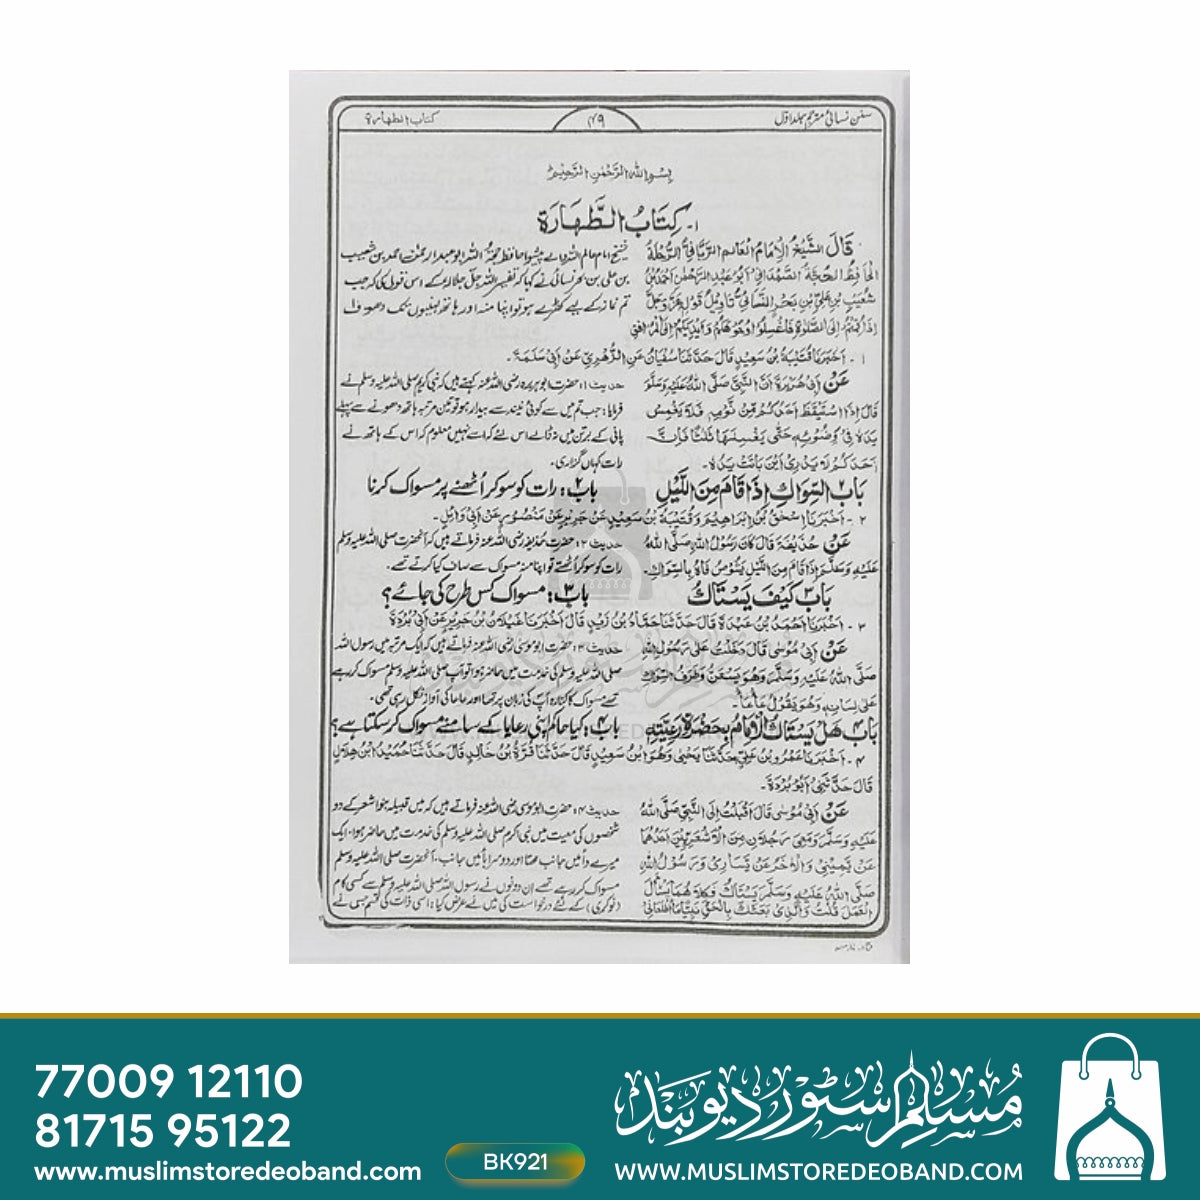 سنن نسائی مترجم جلد اول
۴۹
کتاب الطہارۃ
بِسْمِ اللهِ الرَّحْمٰنِ الرَّحِيْمِ
۱۔ كِتَابُ الطَّهَارَةِ
قَالَ الشَّيْخُ الْاِمَامُ الْعَالِمُ الرَّبَّانِيُّ الرُّحْلَةُ
الْحَافِظُ الْحُجَّةُ الصَّمْدَانِيُّ اَبُوْ عَبْدِ الرَّحْمٰنِ اَحْمَدُ بْنُ
شُعَيْبِ بْنِ عَلِيِّ بْنِ بَحْرِ النَّسَائِيُّ تَاوِيْلُ قَوْلِهٖ عَزَّ وَجَلَّ
اِذَا قُمْتُمْ اِلَى الصَّلٰوةِ فَاغْسِلُوْا وُجُوْهَكُمْ وَاَيْدِيَكُمْ اِلَى الْمَرَافِقِ
شیخ امام عالم اللہ والے پیشوا حافظ حجۃ اللہ ابو عبدالرحمٰن احمد بن شعیب
بن علی بن بحر نسائی نے کہا کہ تفسیر اللہ جل جلالہ کے اس قول کی کہ جب
تم نماز کے لیے کھڑے ہو تو اپنا منہ اور ہاتھ کہنیوں تک دھوؤ
۱ - اَخْبَرَنَا قُتَيْبَةُ بْنُ سَعِيْدٍ قَالَ حَدَّثَنَا سُفْيَانُ عَنِ الزُّهْرِيِّ عَنْ اَبِيْ سَلَمَةَ۔
عَنْ اَبِيْ هُرَيْرَةَ اَنَّ النَّبِيَّ صَلَّى اللهُ عَلَيْهِ وَسَلَّمَ
قَالَ اِذَا اسْتَيْقَظَ اَحَدُكُمْ مِّنْ نَّوْمِهٖ فَلَا يَغْمِسْ
يَدَهٗ فِيْ وَضُوْئِهٖ حَتّٰى يَغْسِلَهَا ثَلٰثًا فَاِنَّ
اَحَدَكُمْ لَا يَدْرِيْ اَيْنَ بَاتَتْ يَدُهٗ۔
حدیث ۱: حضرت ابوہریرہ رضی اللہ عنہ کہتے ہیں کہ نبی کریم صلی اللہ علیہ وسلم نے
فرمایا: جب تم میں سے کوئی نیند سے بیدار ہو تو تین مرتبہ ہاتھ دھونے سے پہلے
پانی کے برتن میں نہ ڈالے اس لئے کہ اسے نہیں معلوم کہ اس کے ہاتھ نے
رات کہاں گزاری۔
بَابُ السِّوَاكِ اِذَا قَامَ مِنَ اللَّيْلِ
باب ۲: رات کو سو کر اُٹھنے پر مسواک کرنا
۲ - اَخْبَرَنَا اِسْحٰقُ بْنُ اِبْرَاهِيْمَ وَقُتَيْبَةُ بْنُ سَعِيْدٍ عَنْ جَرِيْرٍ عَنْ مَنْصُوْرٍ عَنْ اَبِيْ وَائِلٍ۔
عَنْ حُذَيْفَةَ قَالَ كَانَ رَسُوْلُ اللهِ صَلَّى اللهُ
عَلَيْهِ وَسَلَّمَ اِذَا قَامَ مِنَ اللَّيْلِ يَشُوْصُ فَاهُ بِالسِّوَاكِ۔
حدیث ۲: حضرت حذیفہ رضی اللہ عنہ فرماتے ہیں کہ آنحضرت صلی اللہ علیہ وسلم
رات کو سو کر اُٹھتے تو اپنا منہ مسواک سے صاف کیا کرتے تھے۔
بَابُ كَيْفَ يَسْتَاكُ
باب ۳: مسواک کس طرح کی جائے؟
۳ - اَخْبَرَنَا اَحْمَدُ بْنُ عَبْدَةَ قَالَ حَدَّثَنَا حَمَّادُ بْنُ زَيْدٍ قَالَ اَخْبَرَنَا غَيْلَانُ بْنُ جَرِيْرٍ عَنْ اَبِيْ بُرْدَةَ
عَنْ اَبِيْ مُوْسٰى قَالَ دَخَلْتُ عَلٰى رَسُوْلِ اللهِ
صَلَّى اللهُ عَلَيْهِ وَسَلَّمَ وَهُوَ يَسْتَنُّ وَطَرَفُ السِّوَاكِ
عَلٰى لِسَانِهٖ وَهُوَ يَقُوْلُ عَأْعَأْ۔
حدیث ۳: حضرت ابوموسیٰ رضی اللہ عنہ فرماتے ہیں کہ ایک مرتبہ میں رسول اللہ
صلی اللہ علیہ وسلم کی خدمت میں حاضر ہوا تو آپ صلی اللہ علیہ وسلم مسواک کر رہے
تھے مسواک کا کنارہ آپ کی زبان پر تھا اور عاعا کی آواز نکل رہی تھی۔
بَابُ هَلْ يَسْتَاكُ الْاِمَامُ بِحَضْرَةِ رَعِيَّتِهٖ
باب ۴: کیا حاکم اپنی رعایا کے سامنے مسواک کر سکتا ہے؟
۴ - اَخْبَرَنَا عَمْرُو بْنُ عَلِيٍّ حَدَّثَنَا يَحْيٰى وَهُوَ ابْنُ سَعِيْدٍ قَالَ حَدَّثَنَا قُرَّةُ بْنُ خَالِدٍ قَالَ حَدَّثَنَا حُمَيْدُ ابْنُ هِلَالٍ
قَالَ حَدَّثَنِيْ اَبُوْ بُرْدَةَ۔
عَنْ اَبِيْ مُوْسٰى قَالَ اَقْبَلْتُ اِلَى النَّبِيِّ صَلَّى اللهُ
عَلَيْهِ وَسَلَّمَ وَمَعِيَ رَجُلَانِ مِنَ الْاَشْعَرِيِّيْنَ اَحَدُهُمَا
عَنْ يَّمِيْنِيْ وَالْاٰخَرُ عَنْ يَّسَارِيْ وَرَسُوْلُ اللهِ
صَلَّى اللهُ عَلَيْهِ وَسَلَّمَ يَسْتَاكُ فَكِلَاهُمَا يَسْأَلُ
الْعَمَلَ قُلْتُ وَالَّذِيْ بَعَثَكَ بِالْحَقِّ نَبِيًّا مَا اَطْلَعَانِيْ
حدیث ۴: حضرت ابوموسیٰ رضی اللہ عنہ فرماتے ہیں کہ میں قبیلہ بنو اشعر کے دو
شخصوں کی معیت میں نبی اکرم صلی اللہ علیہ وسلم کی خدمت میں حاضر ہوا۔ ایک
میرے دائیں جانب تھا اور دوسرا بائیں جانب۔ آنحضرت صلی اللہ علیہ وسلم
مسواک کر رہے تھے ان دونوں نے رسول اللہ صلی اللہ علیہ وسلم سے کسی کام
(نوکری) کے لئے درخواست کی میں نے عرض کیا: اس ذات کی قسم جس نے
77009 12110
81715 95122
www.muslimstoredeoband.com
BK921
مسلم سٹور دیوبند
WWW.MUSLIMSTOREDEOBAND.COM